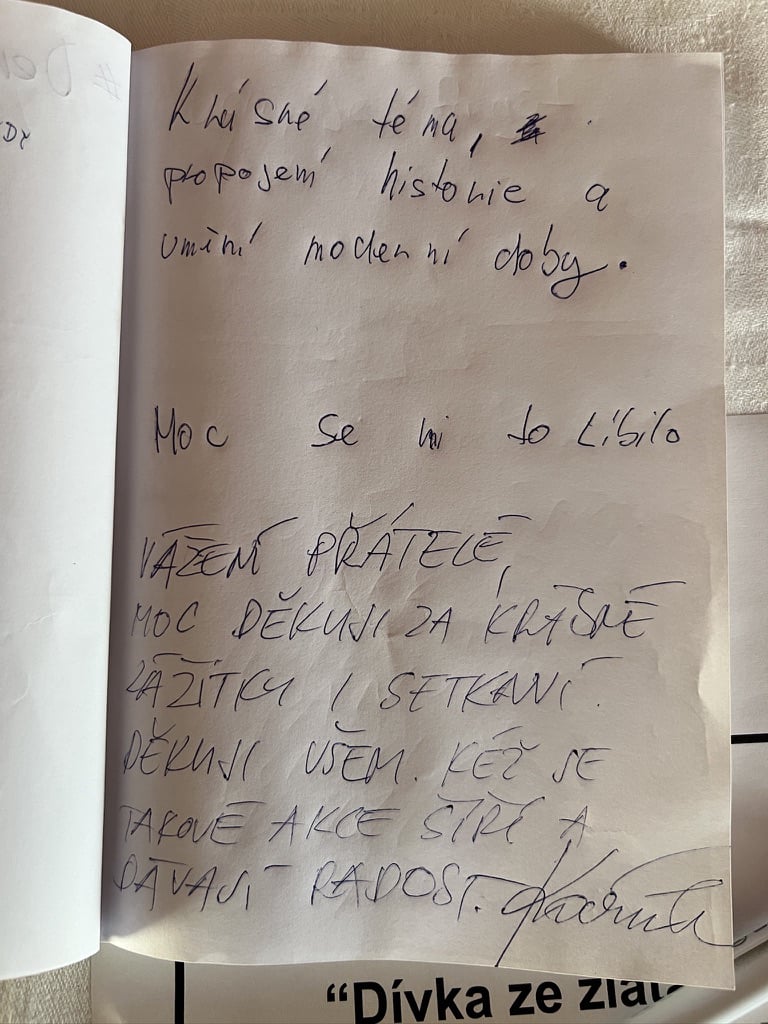 Krásné téma,
propojení historie a
umění moderní doby.
Moc se mi to líbilo
VÁŽENÍ PŘÁTELÉ,
MOC DĚKUJI ZA KRÁSNÉ
ZÁŽITKY I SETKÁNÍ.
DĚKUJI VŠEM. KÉŽ SE
TAKOVÉ AKCE ŠÍŘÍ A
DÁVAJÍ RADOST.
“Dívka ze zlat